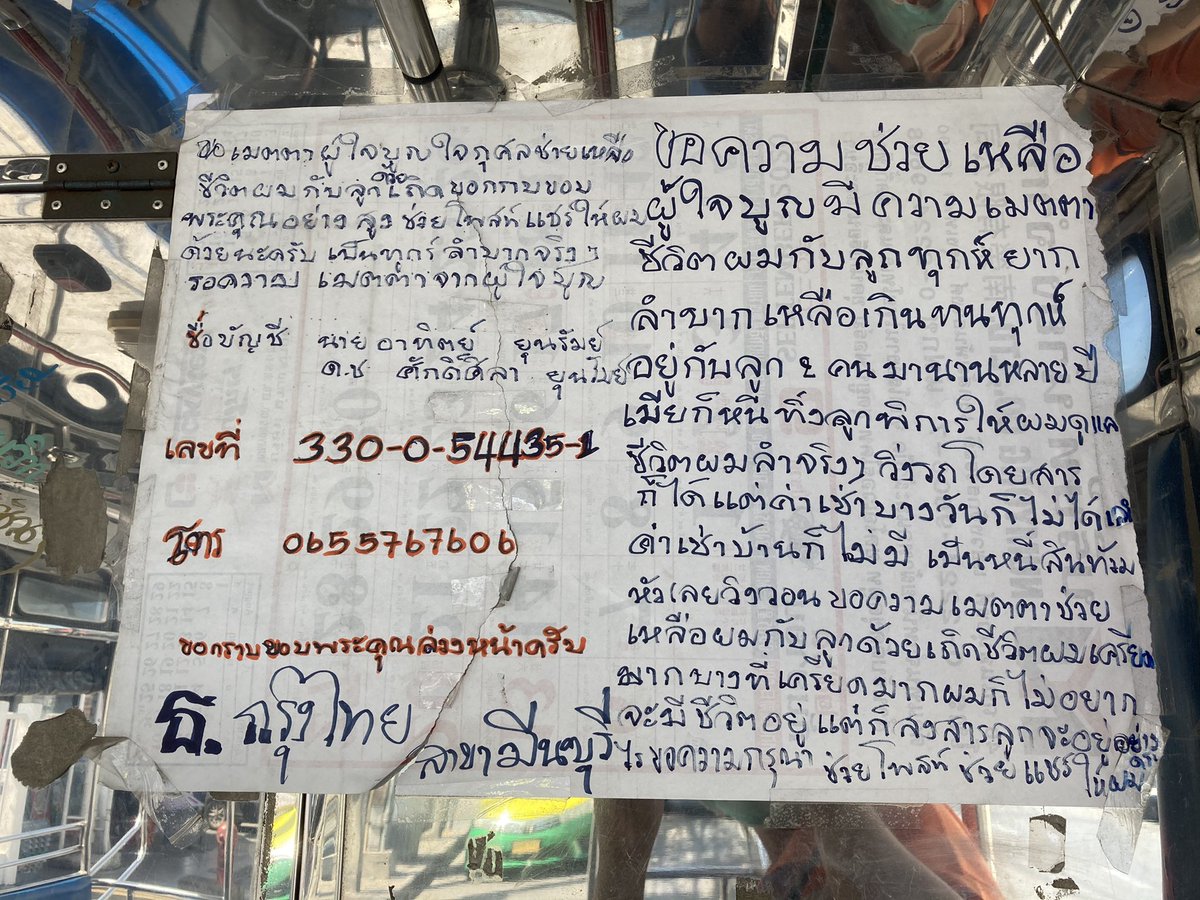 ขอเมตตาผู้ใจบุญใจกุศลช่วยเหลือ
ชีวิตผมกับลูกด้วยเถิดขอกราบขอบ
พระคุณอย่างสูงช่วยโพสท์แชร์ให้ผม
ด้วยนะครับ เป็นทุกร์ลำบากจริงๆ
รอความเมตต่าจากผู้ใจบุญ
ชื่อบัญชี นายอาทิตย์ ยุนรัมย์
ด.ช ศักดิ์ศิลา ยุนรัมย์
เลขที่ 330-0-54435-1
โทร 0655767606
ขอกราบขอบพระคุณล่วงหน้าครับ
ธ. กรุงไทย
สาขามีนบุรี
ขอความช่วยเหลือ
ผู้ใจบุญมีความเมตตา
ชีวิตผมกับลูกทุกห์ยาก
ลำบากเหลือเกินทนทุกห์
อยู่กับลูก ๒ คนมานานหลายปี
เมียก็หนี ทิ้งลูกพิการให้ผมดูแล
ชีวิตผมลำจริงๆ วิ่งรถโดยสาร
ก็ได้แต่ค่าเช่าบางวันก็ไม่ได้เลย
ค่าเช่าบ้านก็ไม่มี เป็นหนี้สินท้วม
หัวเลยวิงวอนขอความเมตตาช่วย
เหลือผมกับลูกด้วยเถิดชีวิตผมเครียด
มากบางทีเครียดมากผมก็ไม่อยาก
จะมีชีวิตอยู่แต่ก็สงสารลูกจะอยู่อย่าง
ไรขอความกรุณา ช่วยโพสท์ ช่วยแชร์
ให้ผม